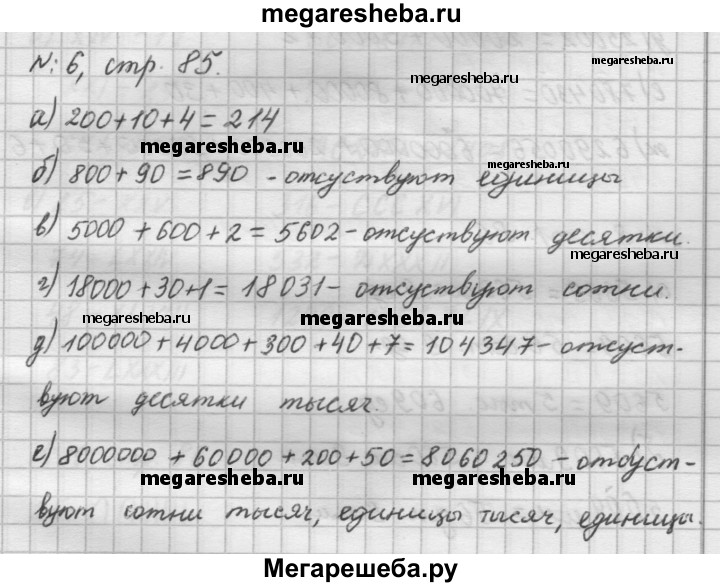 megaresheba.ru
№ 6, стр. 85.
megaresheba.ru
megaresheba.ru
а) 200+10+4=214
megaresheba.ru
б) 800+90=890 - отсуствуют единицы
megaresheba.ru
в) 5000+600+2=5602-отсуствуют десятки.
megaresheba.ru
megaresheba.ru
г) 18000+30+1=18031- отсуствуют сотни.
megaresheba.ru
megaresheba.ru
megaresheba.ru
д) 100000+4000+300+40+7=104347-отсуст-
вуют десятки тысяч.
е) 8000000+60000+200+50=8060250-отсуст-
megaresheba.ru
megaresheba.ru
вуют сотни тысяч, единицы тысяч, единицы.
Мегарешеба.ру